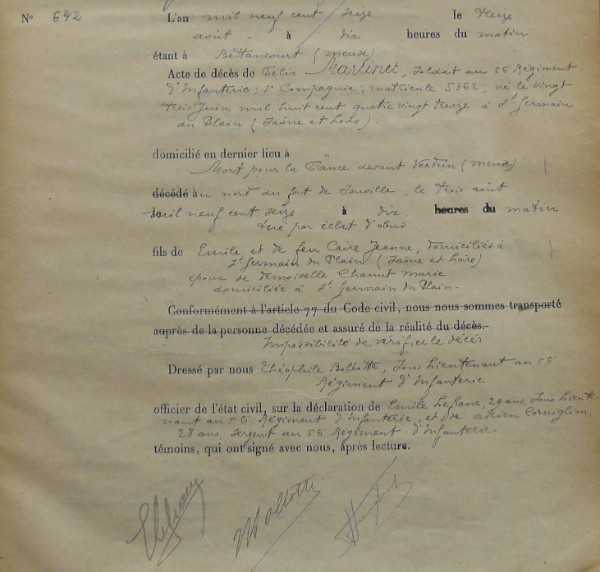 N° 692 L'an mil neuf cent seize le treize
août à dix heures du matin
étant à Bettancourt (Meuse)
Acte de décès de Félix Martinet, soldat au 56 Régiment
d'Infanterie, Compagnie, matricule 5362, né le vingt
trois Juin mil huit cent quatre vingt treize à St Germain
du Plain (Saône et Loire)
domicilié en dernier lieu à
Mort pour la France devant Verdun (Meuse)
décédé au nord du fort de Souville, le trois août
mil neuf cent seize à dix heures du matin
tué par éclat d'obus
fils de Emile et de feu Caire Jeanne, domiciliés à
St Germain du Plain (Saône et Loire)
époux de demoiselle Chanut Marie
domiciliée à St Germain du Plain.
Conformément à l'article 77 du Code civil, nous nous sommes transporté
auprès de la personne décédée et assuré de la réalité du décès.
Impossibilité de vérifier le décès
Dressé par nous Théophile, Sous Lieutenant au 56
Régiment d'Infanterie
officier de l'état civil, sur la déclaration de Emile Lefranc, 29 ans, Sous Lieute
nant au 56 Régiment d'Infanterie, et de Adrien Corniglion,
28 ans, Sergent au 56 Régiment d'Infanterie.
témoins, qui ont signé avec nous, après lecture.